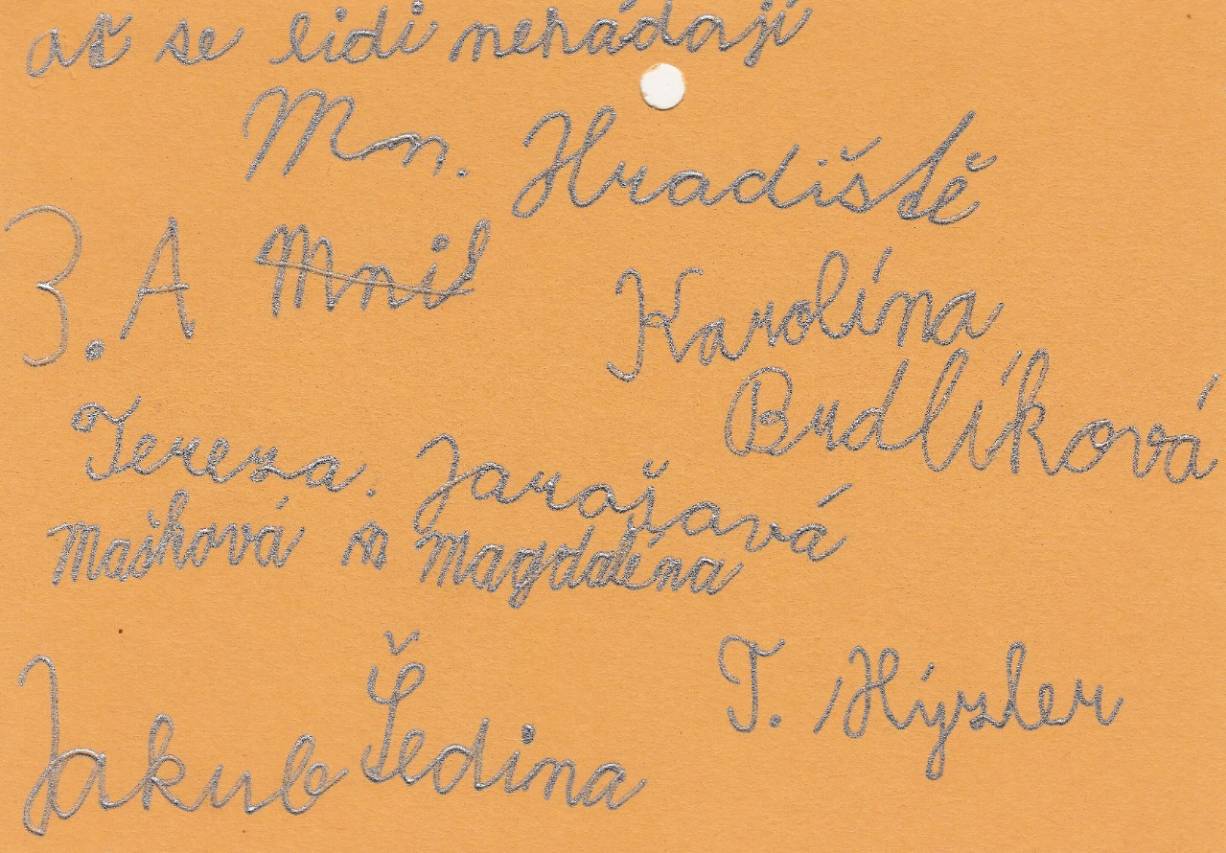 ať se lidi nehádají
Mn. Hradiště
3. A Mnil
Karolína
Brdlíková
Tereza. Jarašavá
Mašková Magdaléna
Jakub Šedina
T. Hýzler